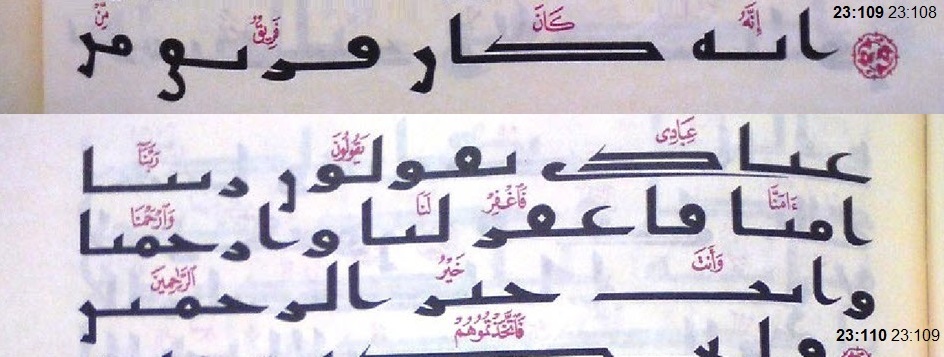 23:109 23:108
إِنَّهُ كَانَ فَرِيقٌ مِّنْ
انه كان فريق من
عِبَادِى يَقُولُونَ رَبَّنَا
عبادى يقولون ربنا
ءَامَنَّا فَٱغْفِرْ لَنَا وَٱرْحَمْنَا
امنا فاغفر لنا وارحمنا
وَأَنتَ خَيْرُ ٱلرَّٰحِمِينَ
وانت خير الرحمين
فَٱتَّخَذْتُمُوهُمْ
23:110 23:109